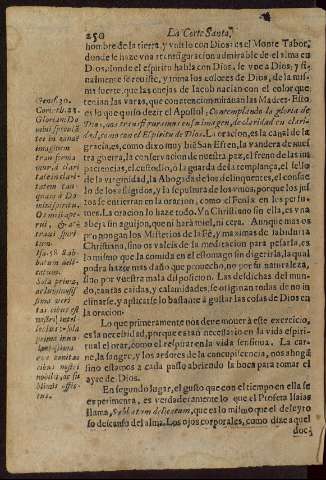 250
La Corte Santa,
hombre de la tierra, y vnirlo con Dios: es el Monte Tabor,
donde se haze vna transfiguracion admirable de el alma en
Dios, donde el espiritu habla con Dios, se vee a Dios, y fi-
nalmente se reuiste, y toma los colores de Dios, de la mis-
ma suerte, que las ouejas de Iacob nacian con el color que
tenian las varas, que con atencion mirauan las Madres. Esso
es lo que quiso dezir el Apostol, Contemplando la gloria de
Dios, nos transformaremos en su imagen, de claridad en clari-
dad, como con el Espiritu de Dios. La oracion, es la canal de la
gracia, es, como dixo muy bien San Efren, la vandera de nues-
tra guerra, la conseruacion de nuestra paz, el freno de las im-
paciencias, el custodio, o la guarda de la templança, el sello
de la virginidad, la Abogada de los delinquentes, el consue-
lo de los afligidos, y la sepultura de los viuos, porque los jus-
tos se entierran en la oracion, como el Fenix en los perfu-
mes. La oracion lo haze todo. Vn Christiano sin ella, es vna
abeja sin aguijon, que ni hará miel, ni cera. Aunque mas os
propongan los Misterios de la Fè, y maximas de sabiduria
Christiana, sino os valeis de la meditacion para pesarla, es
lo mismo que la comida en el estomago sin digerirla, la qual
podra hazer mas daño que prouecho, no por su naturaleza,
sino por vuestra mala disposicion. Las desdichas del mun-
do, tantas caidas, y calamidades, se originan todas de no in-
clinarse, y aplicarse lo bastante a gustar las cosas de Dios en
la oracion.
Lo que primeramente nos deue mouer à este exercicio,
es la necesidad, porque es tan necessario en la vida espiri-
tual el orar, como el respirar en la vida sensitiua. La car-
ne, la sangre, y los ardores de la concupiscencia, nos ahogã
sino estamos a cada passo abriendo la boca para tomar el
ayre de Dios.
En segundo lugar, el gusto que con el tiempo en ella se
experimenta, es verdaderamente lo que el Profeta Isaias
llama, Sabbatum delicatum, que es lo mismo que el deleyto
so descanso del alma. Los ojos corporales, como dize aquel
doc-
Genes. 30.
Gloriam Do-
mini specula
tes in eandẽ
imaginem
transforma
mur, à clari
tate in clari-
tatem tan-
quam à Do
mini spiritu
Isa. 58. Sab-
batum deli-
catum.